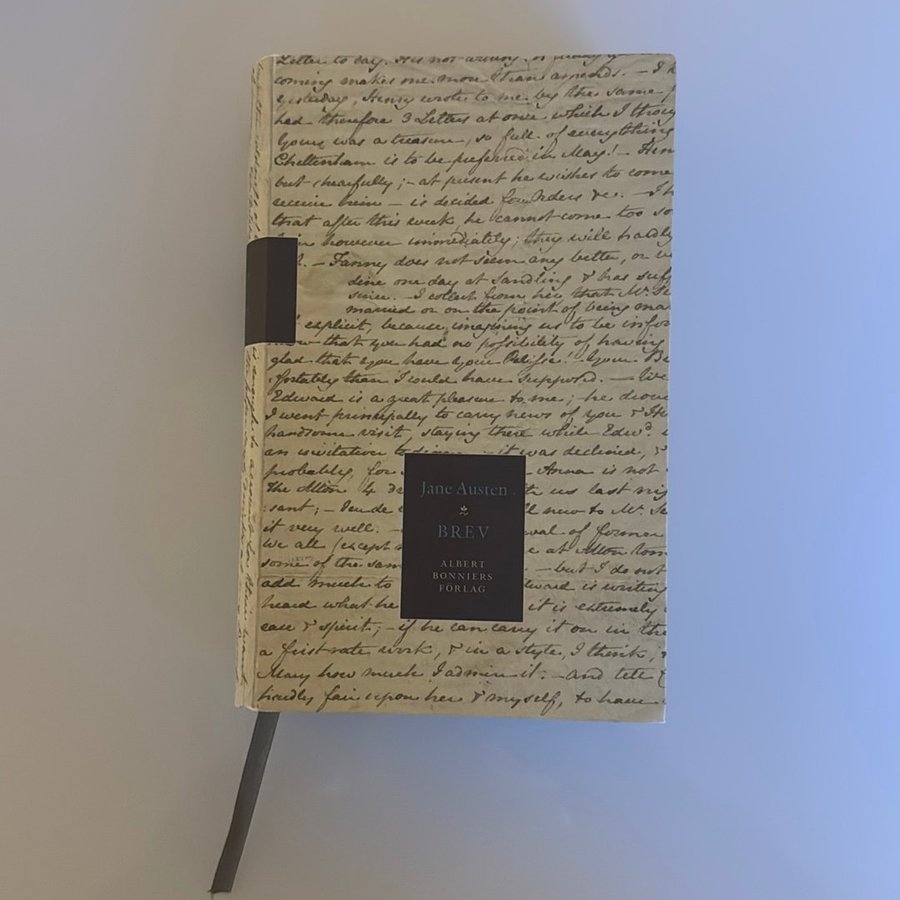 Letter to day. His not
coming makes one more than amends. — I
yesterday, Henry wrote to me by the same
had therefore 3 Letters at once which I thou
Yours was a treasure, so full of everything
Cheltenham is to be preferred in May! — Hen
but chearfully; — at present he wishes to come
receive him — is decided for Orders &c. — I h
that after this week he cannot come too so
him however immediately; they will hardly
— Fanny does not seem any better, or
dine one day at Sandling & has suff
since. — I collect from her that Mr.
married or on the point of being ma
explicit, because imagining us to be infor
that you had no possibility of having
glad that you have your Pelisse! Your
fortably than I could have supposed. —
Edward is a great pleasure to me; — he drove
I went principally to carry news of you & H
handsome visit, staying there while Edwd.
an invitation to — it was declined,
probably, for — Anna is not
the Alton 4 us last nig
sant; — new to Mr.
it very well. — val of former
We all (except e at Alton
some of the sam — but I do not
add much to ward is writing
heard what he it is extremely
ease & spirit; — if he can carry it on in the
a first rate work, & in a style, I think,
Mary how much I admire it. — and tell
hardly fair upon her & myself, to have
Jane Austen
BREV
ALBERT
BONNIERS
FÖRLAG